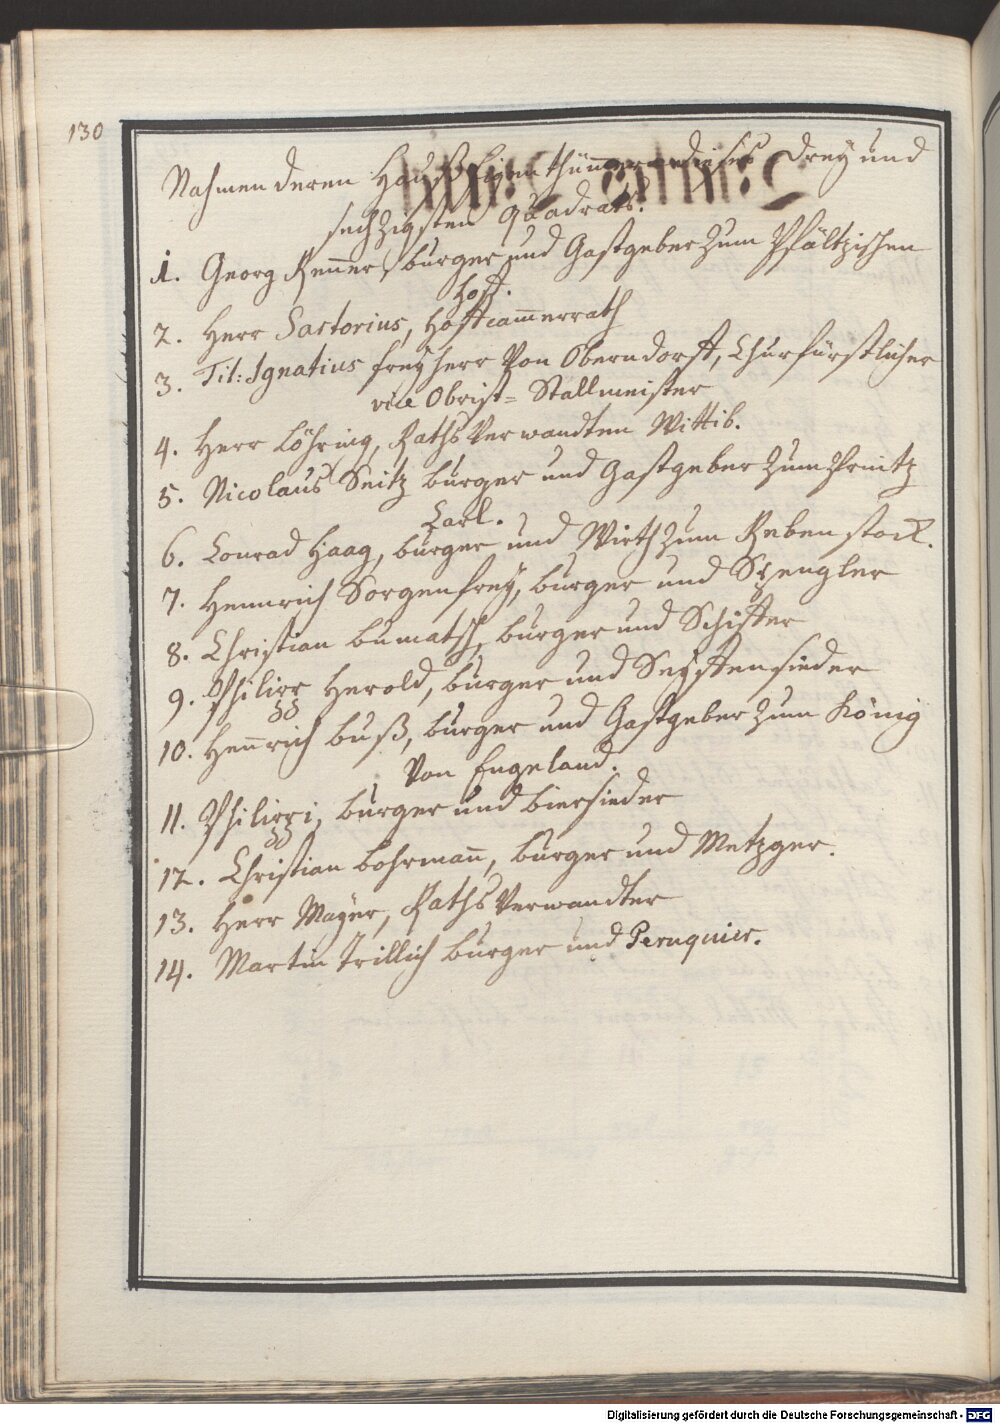 130
Nahmen deren Hauß Eigenthümmer dieses drey und
sechzigsten Quadrats.
1. Georg Renner, burger und Gastgeber zum Pfältzischen
Hoff.
2. Herr Sartorius, Hoffcammerrath
3. Tit: Ignatius freyherr Von Oberndorff, Churfürstlicher
vice Obrist- Stallmeister
4. Herr Löhring, Raths Verwandten Wittib.
5. Nicolaus Seitz burger und Gastgeber zum Printz
Carl.
6. Conrad Haag, burger und Wirth zum Rebenstock.
7. Hennrich Sorgenfrey, burger und Spengler
8. Christian bumatsch, burger und Schiffer
9. Philipp Herold, burger und Seyffensieder
10. Hennrich buß, burger und Gastgeber zum König
Von Engeland.
11. Philippi, burger und biersieder
12. Christian bohrmann, burger und Metzger.
13. Herr Mayer, Raths Verwandter
14. Martin Trillich burger und Peruquier.
Digitalisierung gefördert durch die Deutsche Forschungsgemeinschaft - DFG